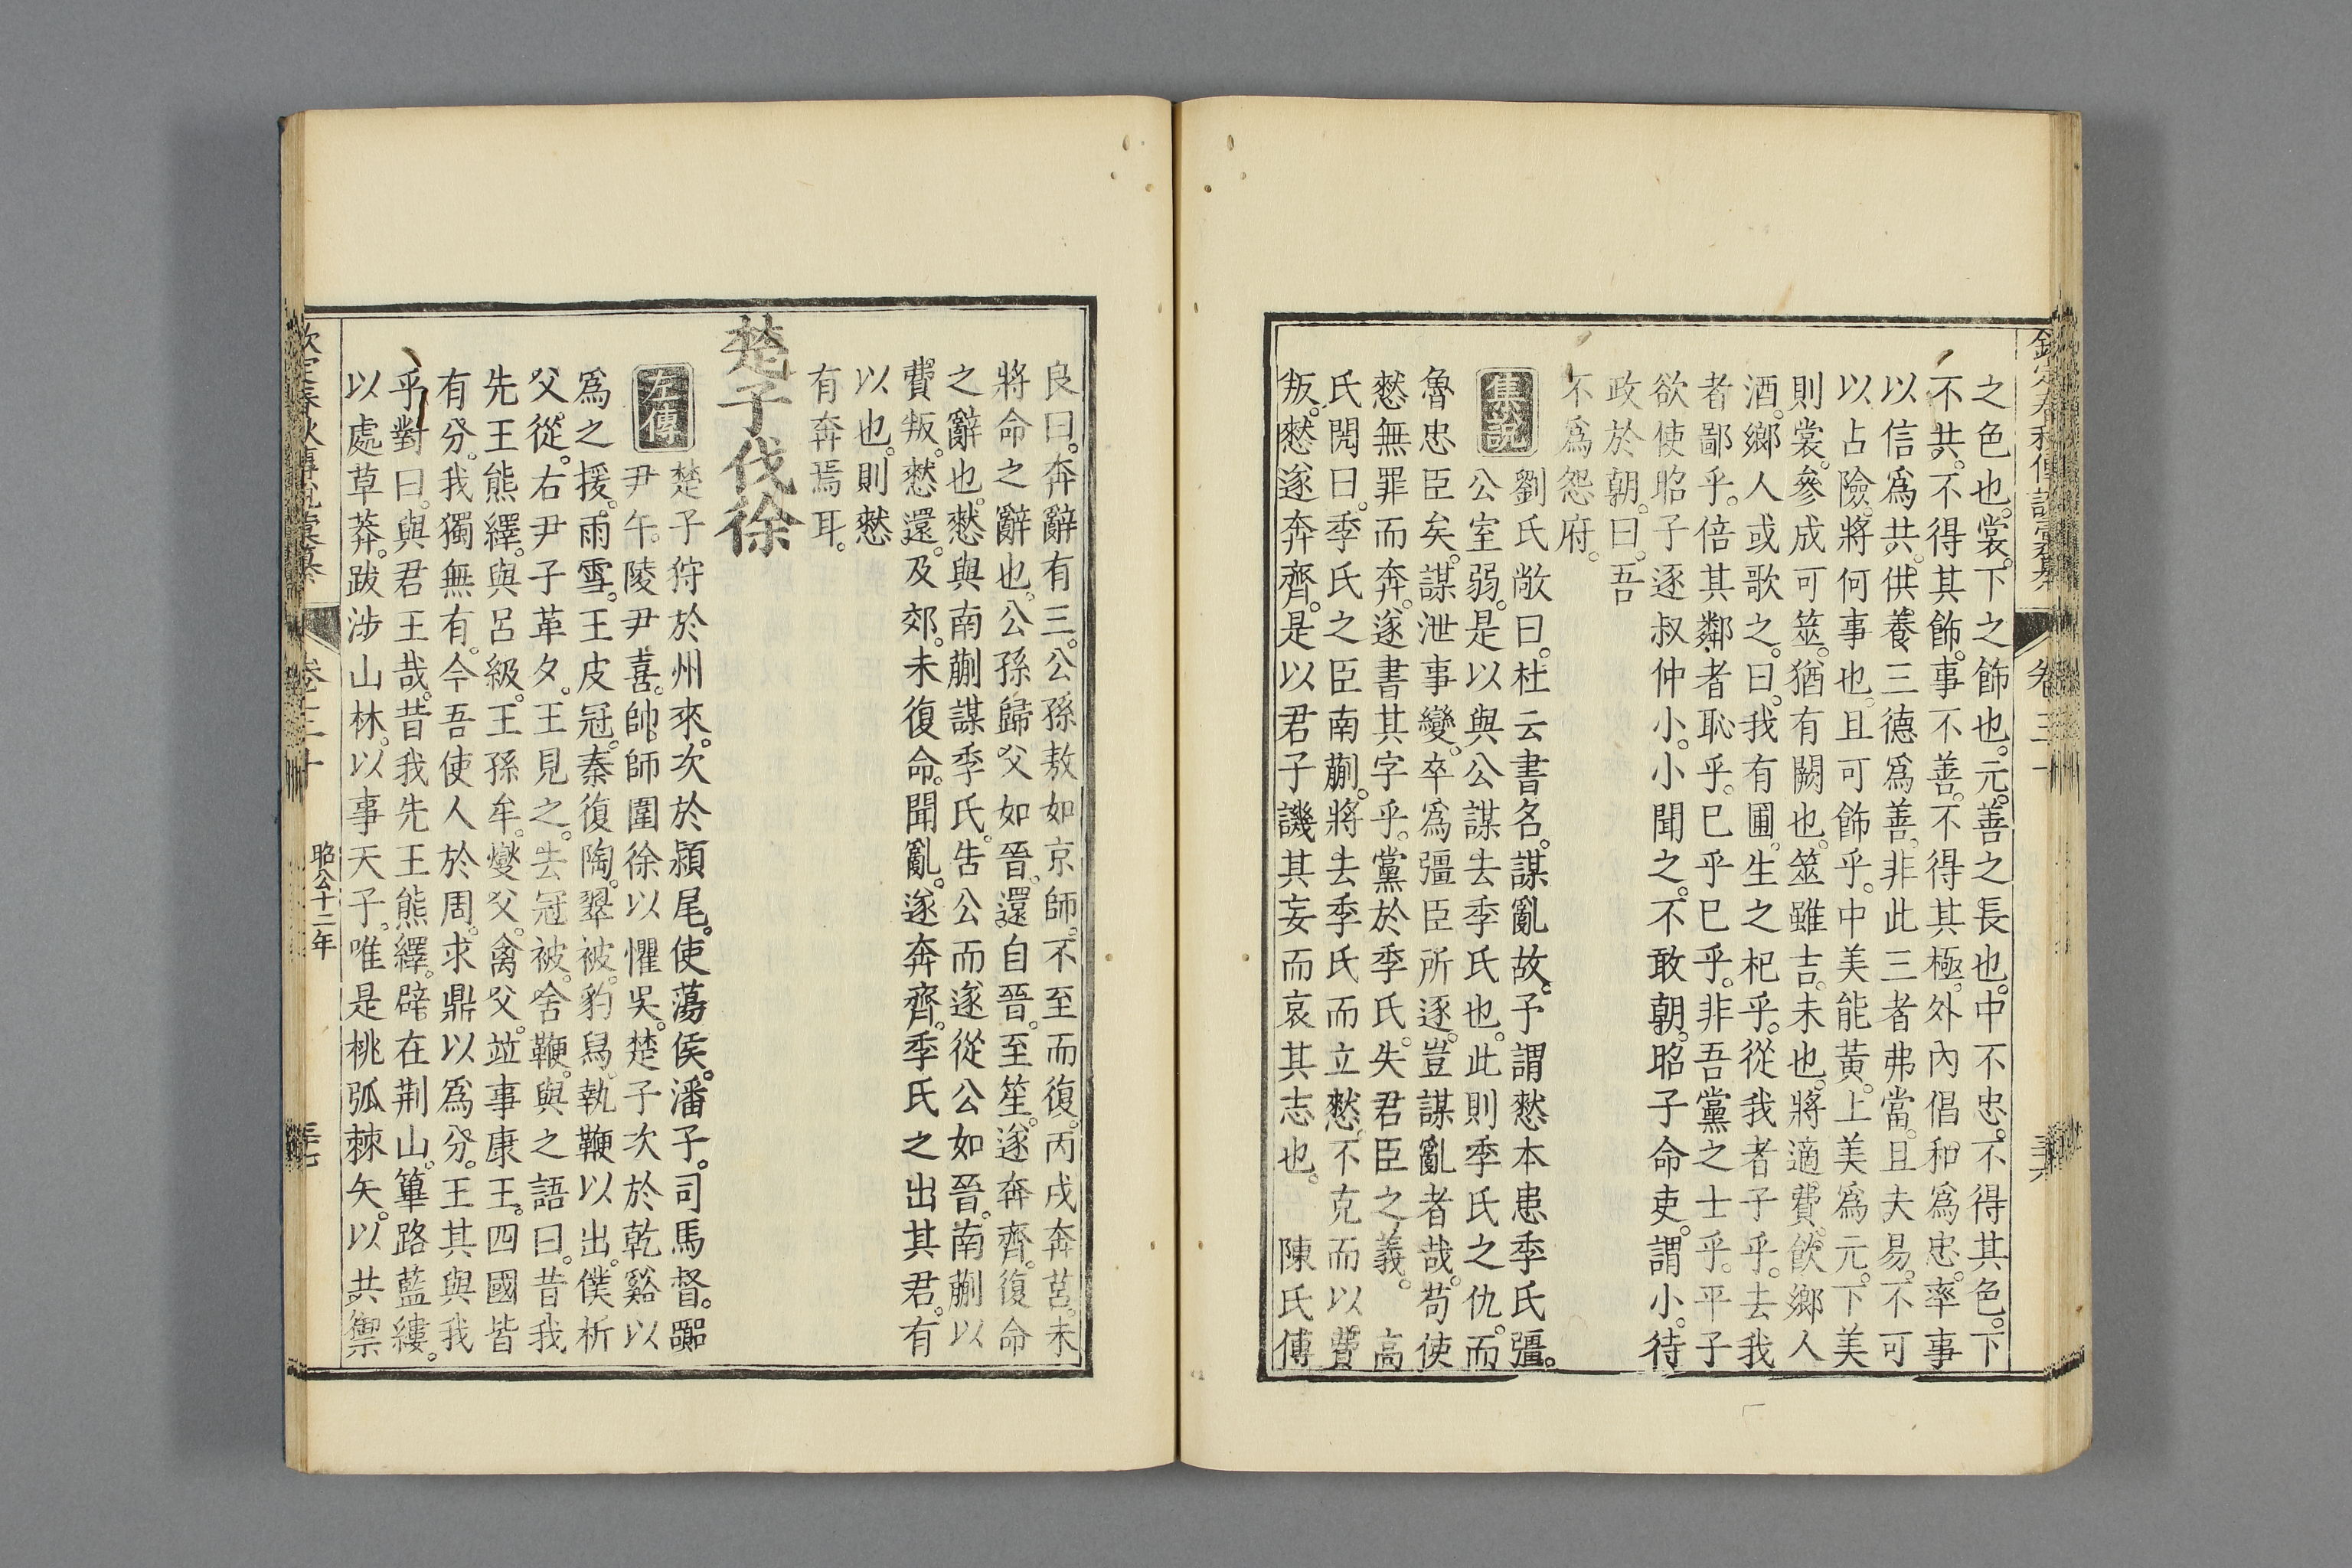 之色也。裳。下之飾也。元。善之長也。中不忠。不得其色。下
不共。不得其飾。事不善。不得其極。外內倡和爲忠。率事
以信爲共。供養三德爲善。非此三者弗當。且夫易。不可
以占險。將何事也。且可飾乎。中美能黃。上美爲元。下美
則裳。參成可筮。猶有闕也。筮雖吉。未也。將適費。飲鄉人
酒。鄉人或歌之。曰。我有圃。生之杞乎。從我者子乎。去我
者鄙乎。倍其鄰者恥乎。已乎已乎。非吾黨之士乎。平子
欲使昭子逐叔仲小。小聞之。不敢朝。昭子命吏。謂小。待
政於朝。曰。吾
不爲怨府。
集說 劉氏敞曰。杜云書名。謀亂故。予謂憖本患季氏彊。
公室弱。是以與公謀去季氏也。此則季氏之仇。而
魯忠臣矣。謀泄事變。卒爲彊臣所逐。豈謀亂者哉。苟使
憖無罪而奔。遂書其字乎。黨於季氏。失君臣之義。 高
氏閌曰。季氏之臣南蒯。將去季氏而立憖。不克而以費
叛。憖遂奔齊。是以君子譏其妄而哀其志也。 陳氏傅
卷三十
三十六
良曰。奔辭有三。公孫敖如京師。不至而復。丙戌奔莒。未
將命之辭也。公孫歸父如晉。還。自晉。至笙。遂奔齊。復命
之辭也。憖與南蒯謀季氏。告公而遂從公如晉。南蒯以
費叛。憖還。及郊。未復命。聞亂。遂奔齊。季氏之出其君。有
以也。則憖
有奔焉耳。
楚子伐徐
左傳 楚子狩於州來。次於潁尾。使蕩侯。潘子。司馬督。嚻
尹午。陵尹喜。帥師圍徐以懼吳。楚子次於乾谿以
爲之援。雨雪。王皮冠。秦復陶。翠被。豹舄。執鞭以出。僕析
父從。右尹子革夕。王見之。去冠被。舍鞭。與之語曰。昔我
先王熊繹。與呂級。王孫牟。燮父。禽父。竝事康王。四國皆
有分。我獨無有。今吾使人於周。求鼎以爲分。王其與我
乎。對曰。與君王哉。昔我先王熊繹。辟在荆山。篳路藍縷。
以處草莽。跋涉山林。以事天子。唯是桃弧棘矢。以共禦
卷三十
昭公十二年
三十七